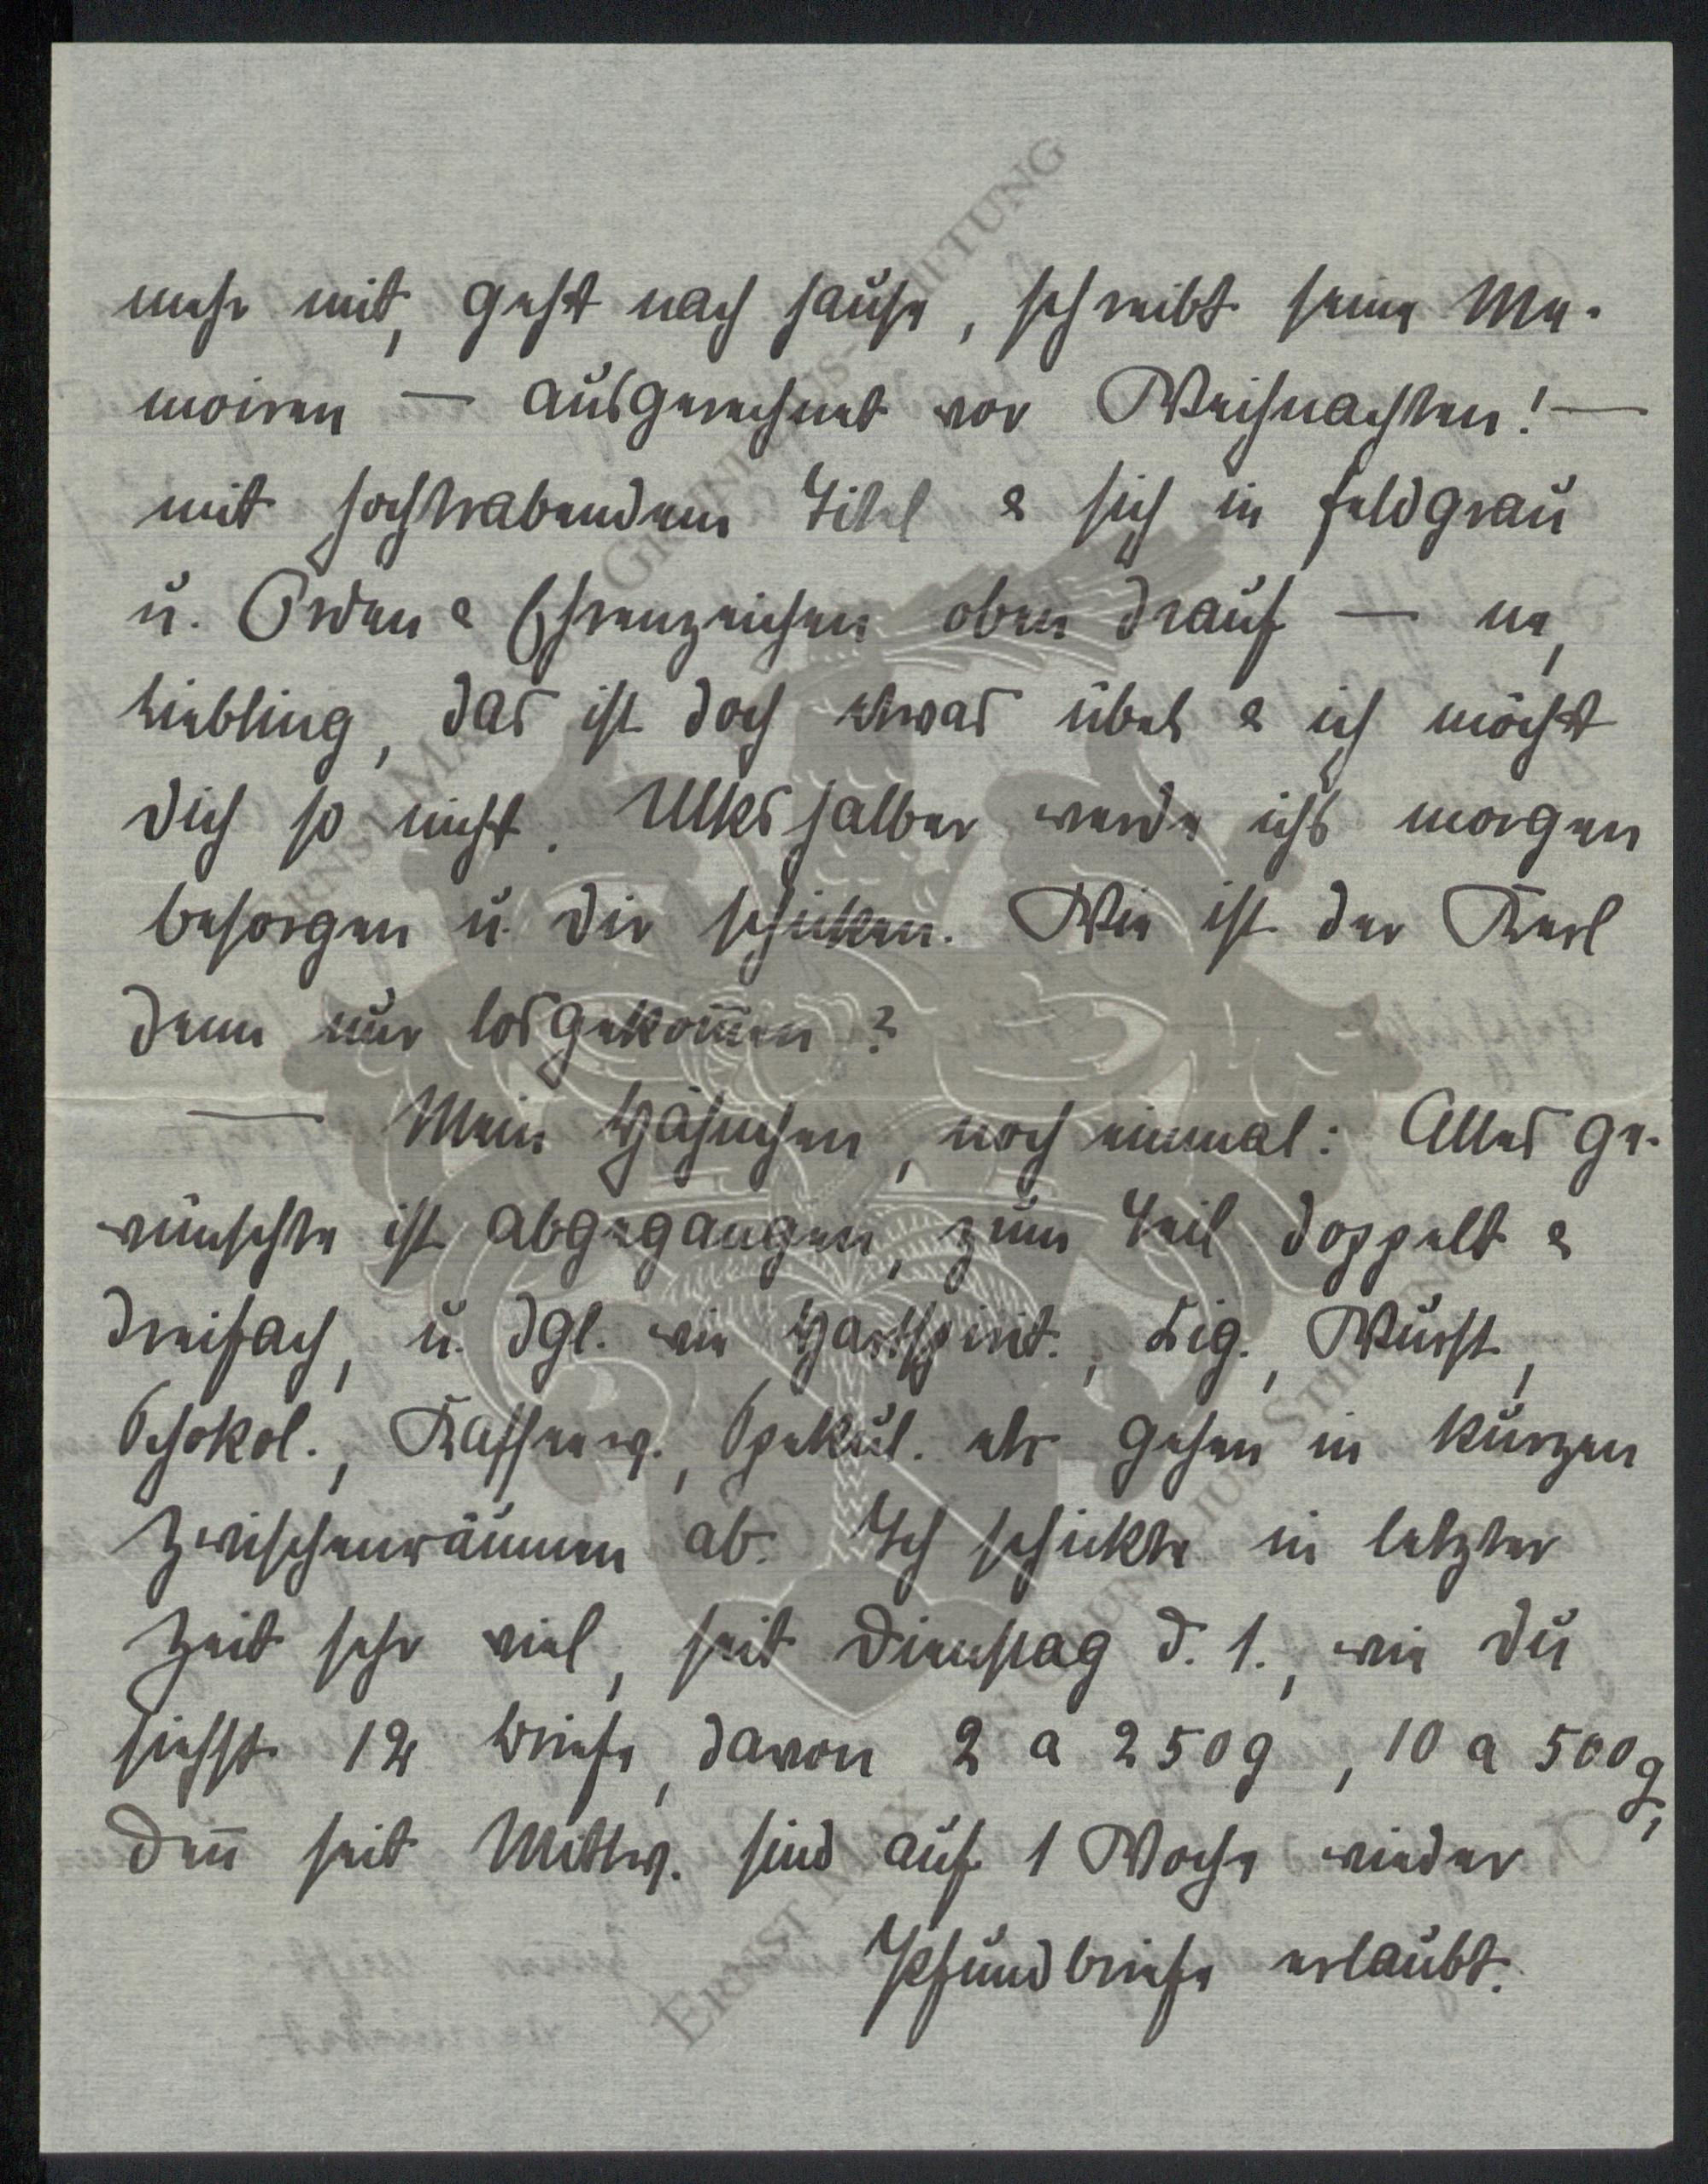 mehr mit, geht nach hause, schreibt seine Me-
moiren — ausgerechnet vor Weihnachten! —
mit hochtrabendem Titel & sich in feldgrau
u. Orden & Ehrenzeichen oben drauf — ne,
Liebling, das ist doch etwas übel & ich möcht
dich so nicht. Ulkshalber werde ichs morgen
besorgen u. dir schicken. Wie ist der Kerl
denn nur losgekom̄en?
— Mein Hähnchen, noch einmal: Alles ge-
wünschte ist abgegangen, zum Teil doppelt &
dreifach, u. dgl. wie Hartspirit., Zig., Wurst,
Schokol., Kaffeew., Spekul. etc gehen in kurzen
Zwischenräumen ab. Ich schickte in letzter
Zeit sehr viel, seit Dienstag d. 1., wie du
siehst 12 Briefe, davon 2 a 250g, 10 a 500g,
den̄ seit Mittw. sind auf 1 Woche wieder
Pfundbriefe erlaubt.
ERNST MAX VON GRUNELIUS-STIFTUNG
ERNST MAX VON GRUNELIUS-STIFTUNG